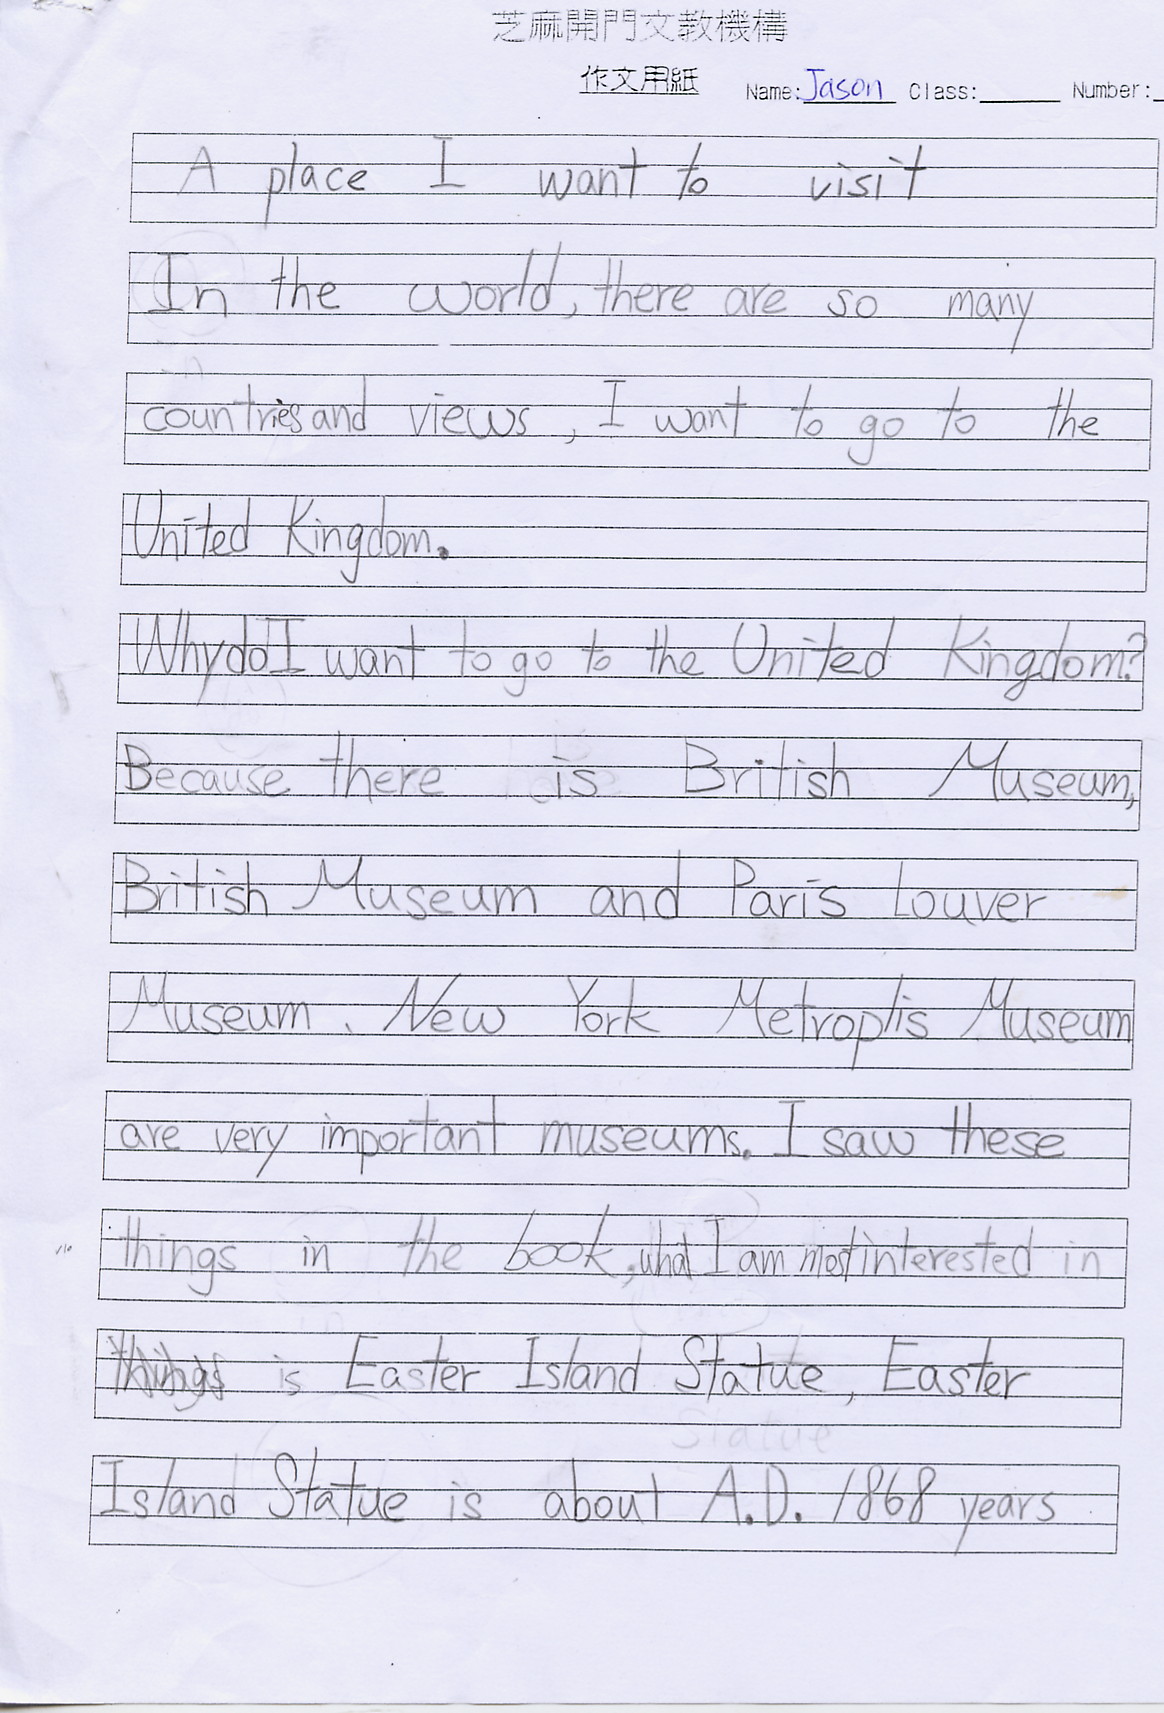 芝麻開門文教機構
作文用紙 Name: Jason Class: Number:
A place I want to visit
In the world, there are so many
countries and views, I want to go to the
United Kingdom.
Why do I want to go to the United Kingdom?
Because there is British Museum,
British Museum and Paris Louver
Museum、New York Metroplis Museum
are very important museums. I saw these
things in the book, what I am most interested in
is Easter Island Statue, Easter
Island Statue is about A.D. 1868 years